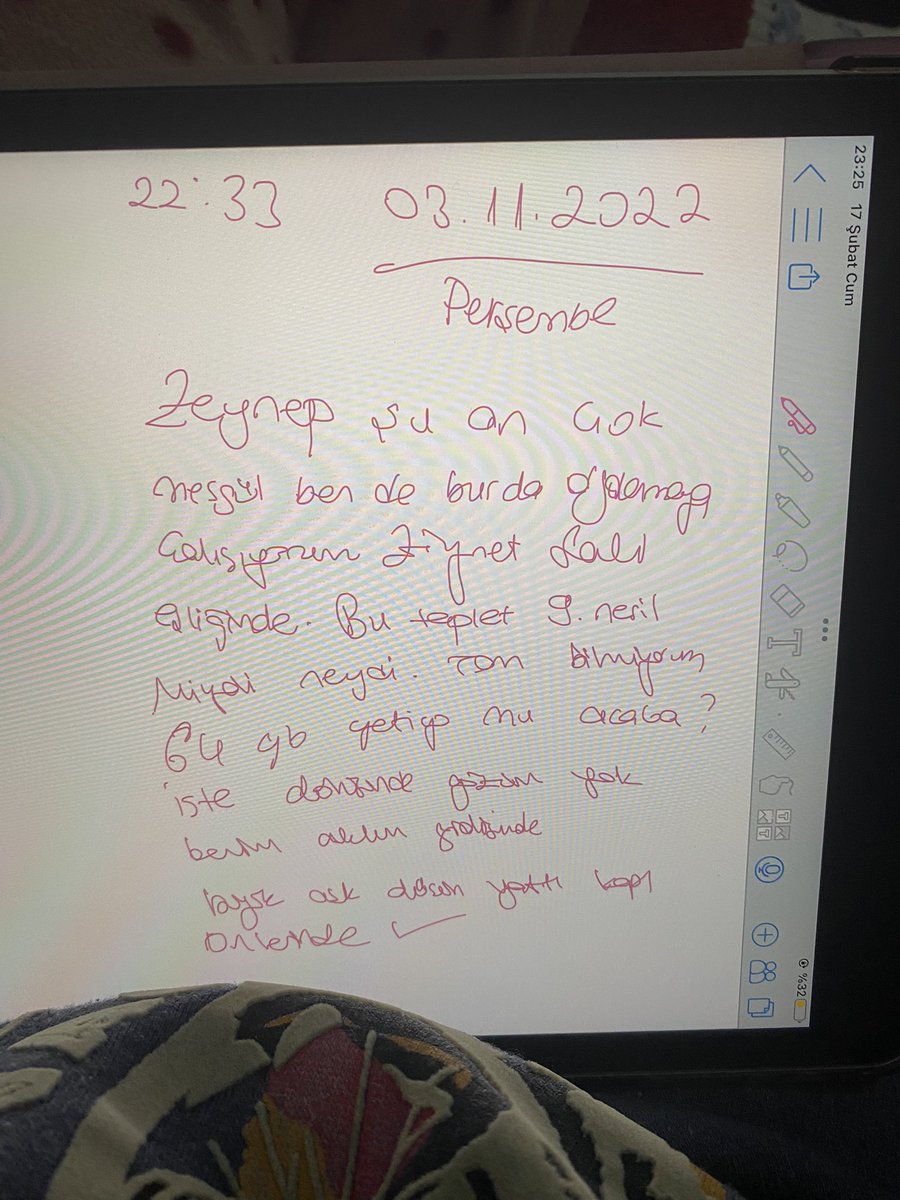 22:33 03.11.2022
Perşembe
Zeynep şu an çok
meşgül ben de burda oyalanmaya
çalışıyorum Ziynet Sali
eşliğinde. Bu teplet 9. nesil
Miydi neydi. Tam bilmiyorum
64 gb yetiyo mu acaba?
işte dönüşünde gözüm yok
benim aklım gidişinde
aşk düson yattı kapı
önlerinde
23:25 17 Şubat Cum
%32
T